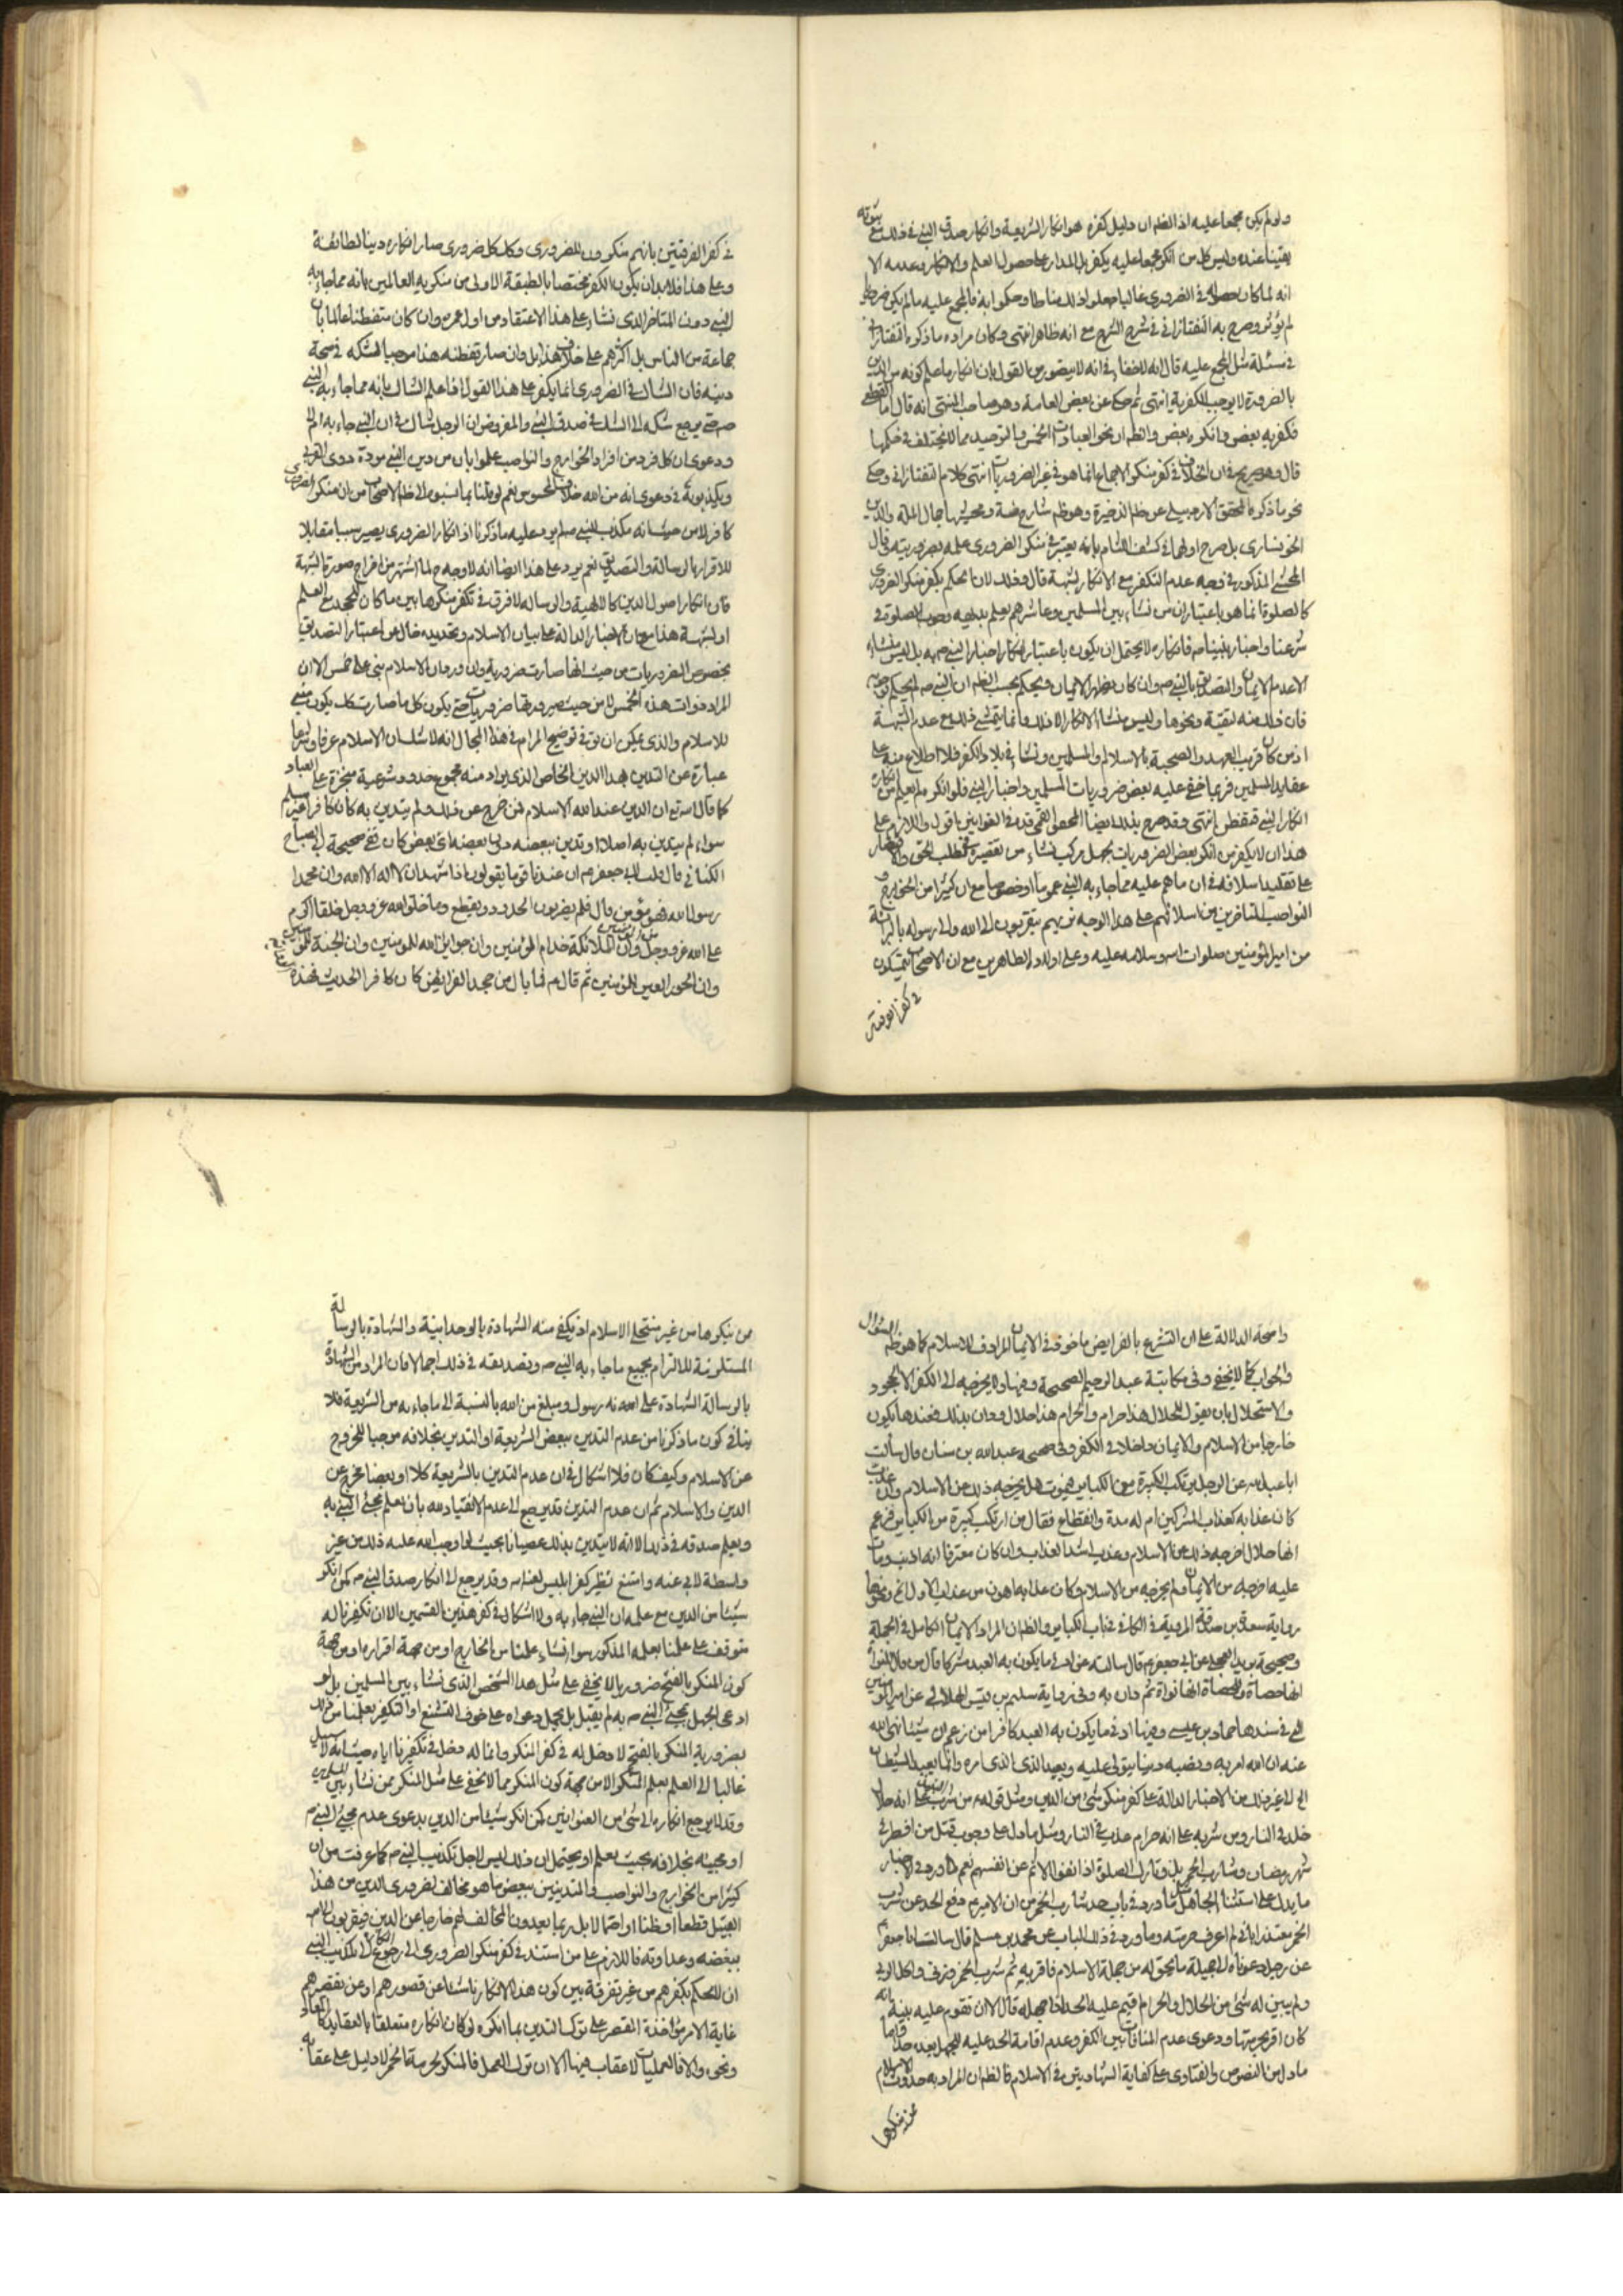 ولو لم يكن مجمعا عليه اذ الظم ان دليل كفره هو انكار الشريعة وانكار صدق النبي في ذلك مع ثبوته
يقينا عنده وليس كل من انكر مجمعا عليه يكفر بل المدار على حصول العلم والانكار وعدمه الا
انه لما كان حصوله في الضروري غالبا جعلوا ذلك مناطا وحكموا به فالمجمع عليه ما لم يكن ضروريا
لم يؤثر وصرح به التفتازاني في شرح الشرح مع انه ظاهر انتهى وكان مراده ما ذكره التفتازاني
في مسئلة مثل المجمع عليه قال انه لا خفاء في انه لا يتصور من القول بان انكار ما علم كونه من الدين
بالضرورة لا يوجب الكفر به انتهى ثم حكى عن بعض العامة وهو صاحب المنتهى انه قال اما القطعي
فكفر به بعض وانكره بعض والظم ان نحو العبادات الخمس والتوحيد مما لا يختلف في حكمها
قال وهو صريح في ان الخلاف في كفر منكر الاجماع انما هو في غير الضروريات انتهى كلام التفتازاني وحكى
نحو ما ذكره المحقق الاردبيلي عن ظم الذخيرة وهو ظم شارح ضة ومحشيها جمال الملة والدين
الخونساري بل صرح اولهما في كشف اللثام بانه يعتبر في منكر الضروري علمه بضروريته وقال
المحشي المذكور في وجه عدم التكفر مع الانكار لشبهة قال وذلك لان الحكم بكفر منكر الضروري
كالصلوة انما هو باعتبار ان من نشاء بين المسلمين وعاشرهم يعلم بديهه وجوب الصلوة في
شرعنا واخبار نبينا صم فانكاره لا يحتمل ان يكون باعتبار انكار اخبار النبي صم به بل ليس منشاءه
الا عدم الايمان والتصديق بالنبي صم وان كان يظهر الايمان ويحكم بحسب الظم ان النبي صم لحكم توجبه
فان ذلك منه لتقية ونحوها وليس منشاء الانكار الا ذلك وانما يتمشى ذلك مع عدم الشبهة
اذ من كان قريب العهد والصحبة بالاسلام والمسلمين ونشاء في بلاد الكفر فلا اطلاع منه على
عقايد المسلمين فربما خفى عليه بعض ضروريات المسلمين واخبار النبي فلو انكره لم يعلم من انكاره
انكار النبي فتفطن انتهى وقد صرح بذلك ايضا المحقق القمي قده في القوانين اقول واللازم على
هذا ان لا يكفر من انكر بعض الضروريات بجهل مركب نشاء من تقصيره في طلب الحق والاقتصار
على تقليد اسلافه في ان ما هم عليه مما جاء به النبي عموما او خصوصا مع ان كثيرا من الخوارج و
النواصب المتاخرين من اسلافهم على هذا الوجه تريهم يتقربون الى الله والى رسوله بالبرائة
من امير المؤمنين صلوات الله وسلامه عليه وعلى اولاده الطاهرين مع ان الاصحاب يتمسكون
في كفر الفرقتين
في كفر الفرقتين بانهم منكرون للضروري وكل كل ضروري صار انكاره دينا لطائفة
وعلى هذا فلا بد ان يكون الكفر مختصا بالطبقة الاولى من منكريه العالمين بانه مما جاء به
النبي دون المتاخر الذي نشاء على هذا الاعتقاد من اول عمره وان كان متفطنا عالما بان
جماعة من الناس بل اكثرهم على خلاف هذا بل وان صار تفطنه هذا موجبا لشكه في صحة
دينه فان الشاك في الضروري انما يكفر على هذا القول اذا علم الشاك بانه مما جاء به النبي
صم حتى يرجع شكه الى الشك في صدق النبي والمفروض ان الرجل شاك في ان النبي جاء به ام لا
ودعوى ان كل فرد من افراد الخوارج والنواصب علموا بان من دين النبي مودة ذوي القربى
ويكذبونه في دعوى انه من الله خلاف المحسوس نعم لو قلنا بما استبوه الى ظم الاصحاب من ان منكر الضروري
كافر لا من حيث انه مكذب للنبي صلم لم يرد عليه ما ذكرنا اذ انكار الضروري يصير سببا مقابلا
للاقرار بالرسالة والتصديق نعم يرد على هذا ايضا انه لا وجه ح لما اشتهر من اخراج صورة الشبهة
فان انكار اصول الدين كالالهية والرساله لا فرق في تكفر منكرها بين ما كان للجحد مع العلم
او لشبهة هذا مع ان الاخبار الدالة على بيان الاسلام وتحديده خال عن اعتبار التصديق
بخصوص الضروريات من حيث انها صارت ضرورية وان ورد ان الاسلام بني على خمس الا ان
المراد ذوات هذه الخمس لا من حيث صيرورتها ضروريات حتى يكون كل ما صار كك يكون مبني
للاسلام والذي يمكن ان يق في توضيح المرام في هذا المجال انه لا شك ان الاسلام عرفا وشرعا
عبارة عن التدين بهذا الدين الخاص الذي يراد منه مجموع حدود شرعية منجزة على العباد
كما قال الله تع ان الدين عند الله الاسلام فمن خرج عن ذلك ولم يتدين به كان كافرا غير مسلم
سواء لم يتدين به اصلا او تدين ببعضه دون بعضه اي بعض كان ففي صحيحة ابي الصباح
الكناني قال قلت لابي جعفر ع ان عندنا قوما يقولون اذا شهد ان لا اله الا الله وان محمدا
رسول الله فهو مؤمن قال فلم يضربون الحدود ويقطع وما خلق الله عز وجل خلقا اكرم
على الله عز وجل من المؤمنين وان الملائكة خدام المؤمنين وان جوار الله للمؤمنين وان الجنة للمؤمنين
وان الحور العين للمؤمنين ثم قال ع فما بال من جحد الفرايض كان كافرا الحديث فهذه
واضحة الدلالة على ان التشرع بالفرايض ماخوذ في الايمان المرادف للاسلام كما هو ظم السؤال
والجواب كما لا يخفى وفي مكاتبة عبد الرحيم الصحيحة وفيها ولا يخرجه الى الكفر الا الجحود
والاستحلال بان يقول للحلال هذا حرام وللحرام هذا حلال ودان بذلك فعندها يكون
خارجا من الاسلام والايمان داخلا في الكفر وفي صحيحة عبد الله بن سنان قال سألت
ابا عبد الله عن الرجل يرتكب الكبيرة من الكباير فيموت هل يخرجه ذلك عن الاسلام وان عذب
كان عذابه كعذاب المشركين ام له مدة وانقطاع فقال من ارتكب كبيرة من الكباير فزعم
انها حلال اخرجه ذلك من الاسلام وعذب اشد العذاب وان كان معترفا انه اذنب ومات
عليه اخرجه من الايمان ولم يخرجه من الاسلام وكان عذابه اهون من عذاب الاول الخ ونحوها
رواية مسعدة بن صدقة المروية في الكافي في باب الكباير والظم ان المراد الايمان الكامل في الجملة
وصحيحة بريد العجلي عن ابي جعفر ع قال سالته عن ادنى ما يكون به العبد مشركا قال من قال للنواة
انها حصاة وللحصاة انها نواة ثم دان به وفي رواية سليم بن قيس الهلالي عن امير المؤمنين
الى في سندها حماد بن عيسى وفيها ادنى ما يكون به العبد كافرا من زعم ان شيئا نهى الله
عنه ان الله امر به ونصبه دينا يتولى عليه ويعبد الذي امره وانما يعبد الشيطان
الى غير ذلك من الاخبار الدالة على كفر منكر شئ من الدين ومثل قوله ع من شرب النبيذ على انه حلال
خلد في النار ومن شربه على انه حرام عذب في النار ومثل ما دل على وجوب قتل من افطر في
شهر رمضان وشارب الخمر بل وتارك الصلوة اذا نفوا الاثم عن انفسهم نعم قد ورد في الاخبار
ما يدل على استثناء الجاهل مثل ما ورد في باب حد شارب الخمر من ان الامير ع دفع الحد عن شرب
الخمر معتذرا باني لم اعرف حرمته وما ورد في ذلك الباب عن محمد بن مسلم قال سالت ابا جعفر
عن رجل دعوناه الى جملة ما نحن له من جملة الاسلام فاقر به ثم شرب الخمر وزنى واكل الربى
ولم يبين له شئ من الحلال والحرام اقيم عليه الحد اذا جهله قال لا الا ان تقوم عليه بينة انه
كان اقر بحرمتها ودعوى عدم المنافات بين الكفر وعدم اقامة الحد عليه للجهل بعيد جدا واما
ما دل من النصوص والفتاوى على كفاية الشهادتين في الاسلام فالظم ان المراد به حدوث الاسلام
ممن ينكرها
ممن ينكرها من غير منتحلي الاسلام اذ يكفي منه الشهادة بالوحدانية والشهادة بالرسالة
المستلزمة للالتزام بجميع ما جاء به النبي صم وتصديقه في ذلك اجمالا فان المراد من الشهادة
بالرسالة الشهادة على انه رسول ومبلغ من الله بالنسبة الى ما جاء به من الشريعة فلا
ينافي كون ما ذكرنا من عدم التدين ببعض الشريعة او التدين بخلافه موجبا للخروج
عن الاسلام وكيف كان فلا اشكال في ان عدم التدين بالشريعة كلا او بعضا مخرج عن
الدين والاسلام ثم ان عدم التدين قد يرجع الى عدم الانقياد لله بان يعلم مجئ النبي به
ويعلم صدقه في ذلك الا انه لا يتدين بذلك عصيانا بحيث لو اوجب الله عليه ذلك من غير
واسطة لابى عنه وامتنع نظير كفر ابليس لعنه الله وقد يرجع الى انكار صدق النبي صم كمن انكر
شيئا من الدين مع علمه ان النبي جاء به ولا اشكال في كفر هذين القسمين الا ان تكفيرنا له
متوقف على علمنا بعلمه المذكور سواء نشاء علمنا من الخارج او من جهة اقراره او من جهة
كون المنكر بالفتح ضروريا لا يخفى على مثل هذا الشخص الذي نشاء بين المسلمين بل لو
ادعى الجهل بمجئ النبي صم به لم يقبل بل يحمل دعواه على خوف التشنع او التكفير بعلمنا من ذلك
بضرورية المنكر بالفتح لا دخل له في كفر المنكر وانما له دخل في تكفيرنا اياه حيث انه لا سبيل
غالبا الى العلم بعلم المنكر الا من جهة كون المنكر مما لا يخفى على مثل المنكر ممن نشاء بين المسلمين
وقد لا يرجع انكاره الى شئ من العنوانين كمن انكر شيئا من الدين بدعوى عدم مجئ النبي صم
او مجيئه بخلافه بحيث يعلم او يحتمل ان ذلك ليس لاجل تكذيب النبي صم كما عرفت من ان
كثيرا من الخوارج والنواصب والمتدينين ببعض ما هو مخالف لضروري الدين من هذا
القبيل قطعا او ظنا او احتمالا بل ربما يعدون المخالف لهم خارجا عن الدين فيتقربون الى الله
ببغضه وعداوته فاللازم على من استند في كفر منكر الضروري الى رجوع انكاره الى تكذيب النبي
ان لا يحكم بكفرهم من غير تفرقة بين كون هذا الانكار ناشئا عن قصورهم او عن تقصيرهم
غاية الامر مؤاخذة المقصر على ترك التدين بما انكره لو كان انكاره متعلقا بالعقايد كالمعاد
ونحوه والا فالعمليات لا عقاب فيها الا ان ترك العمل فالمنكر لحرمة الخمر لا دليل على عقابه